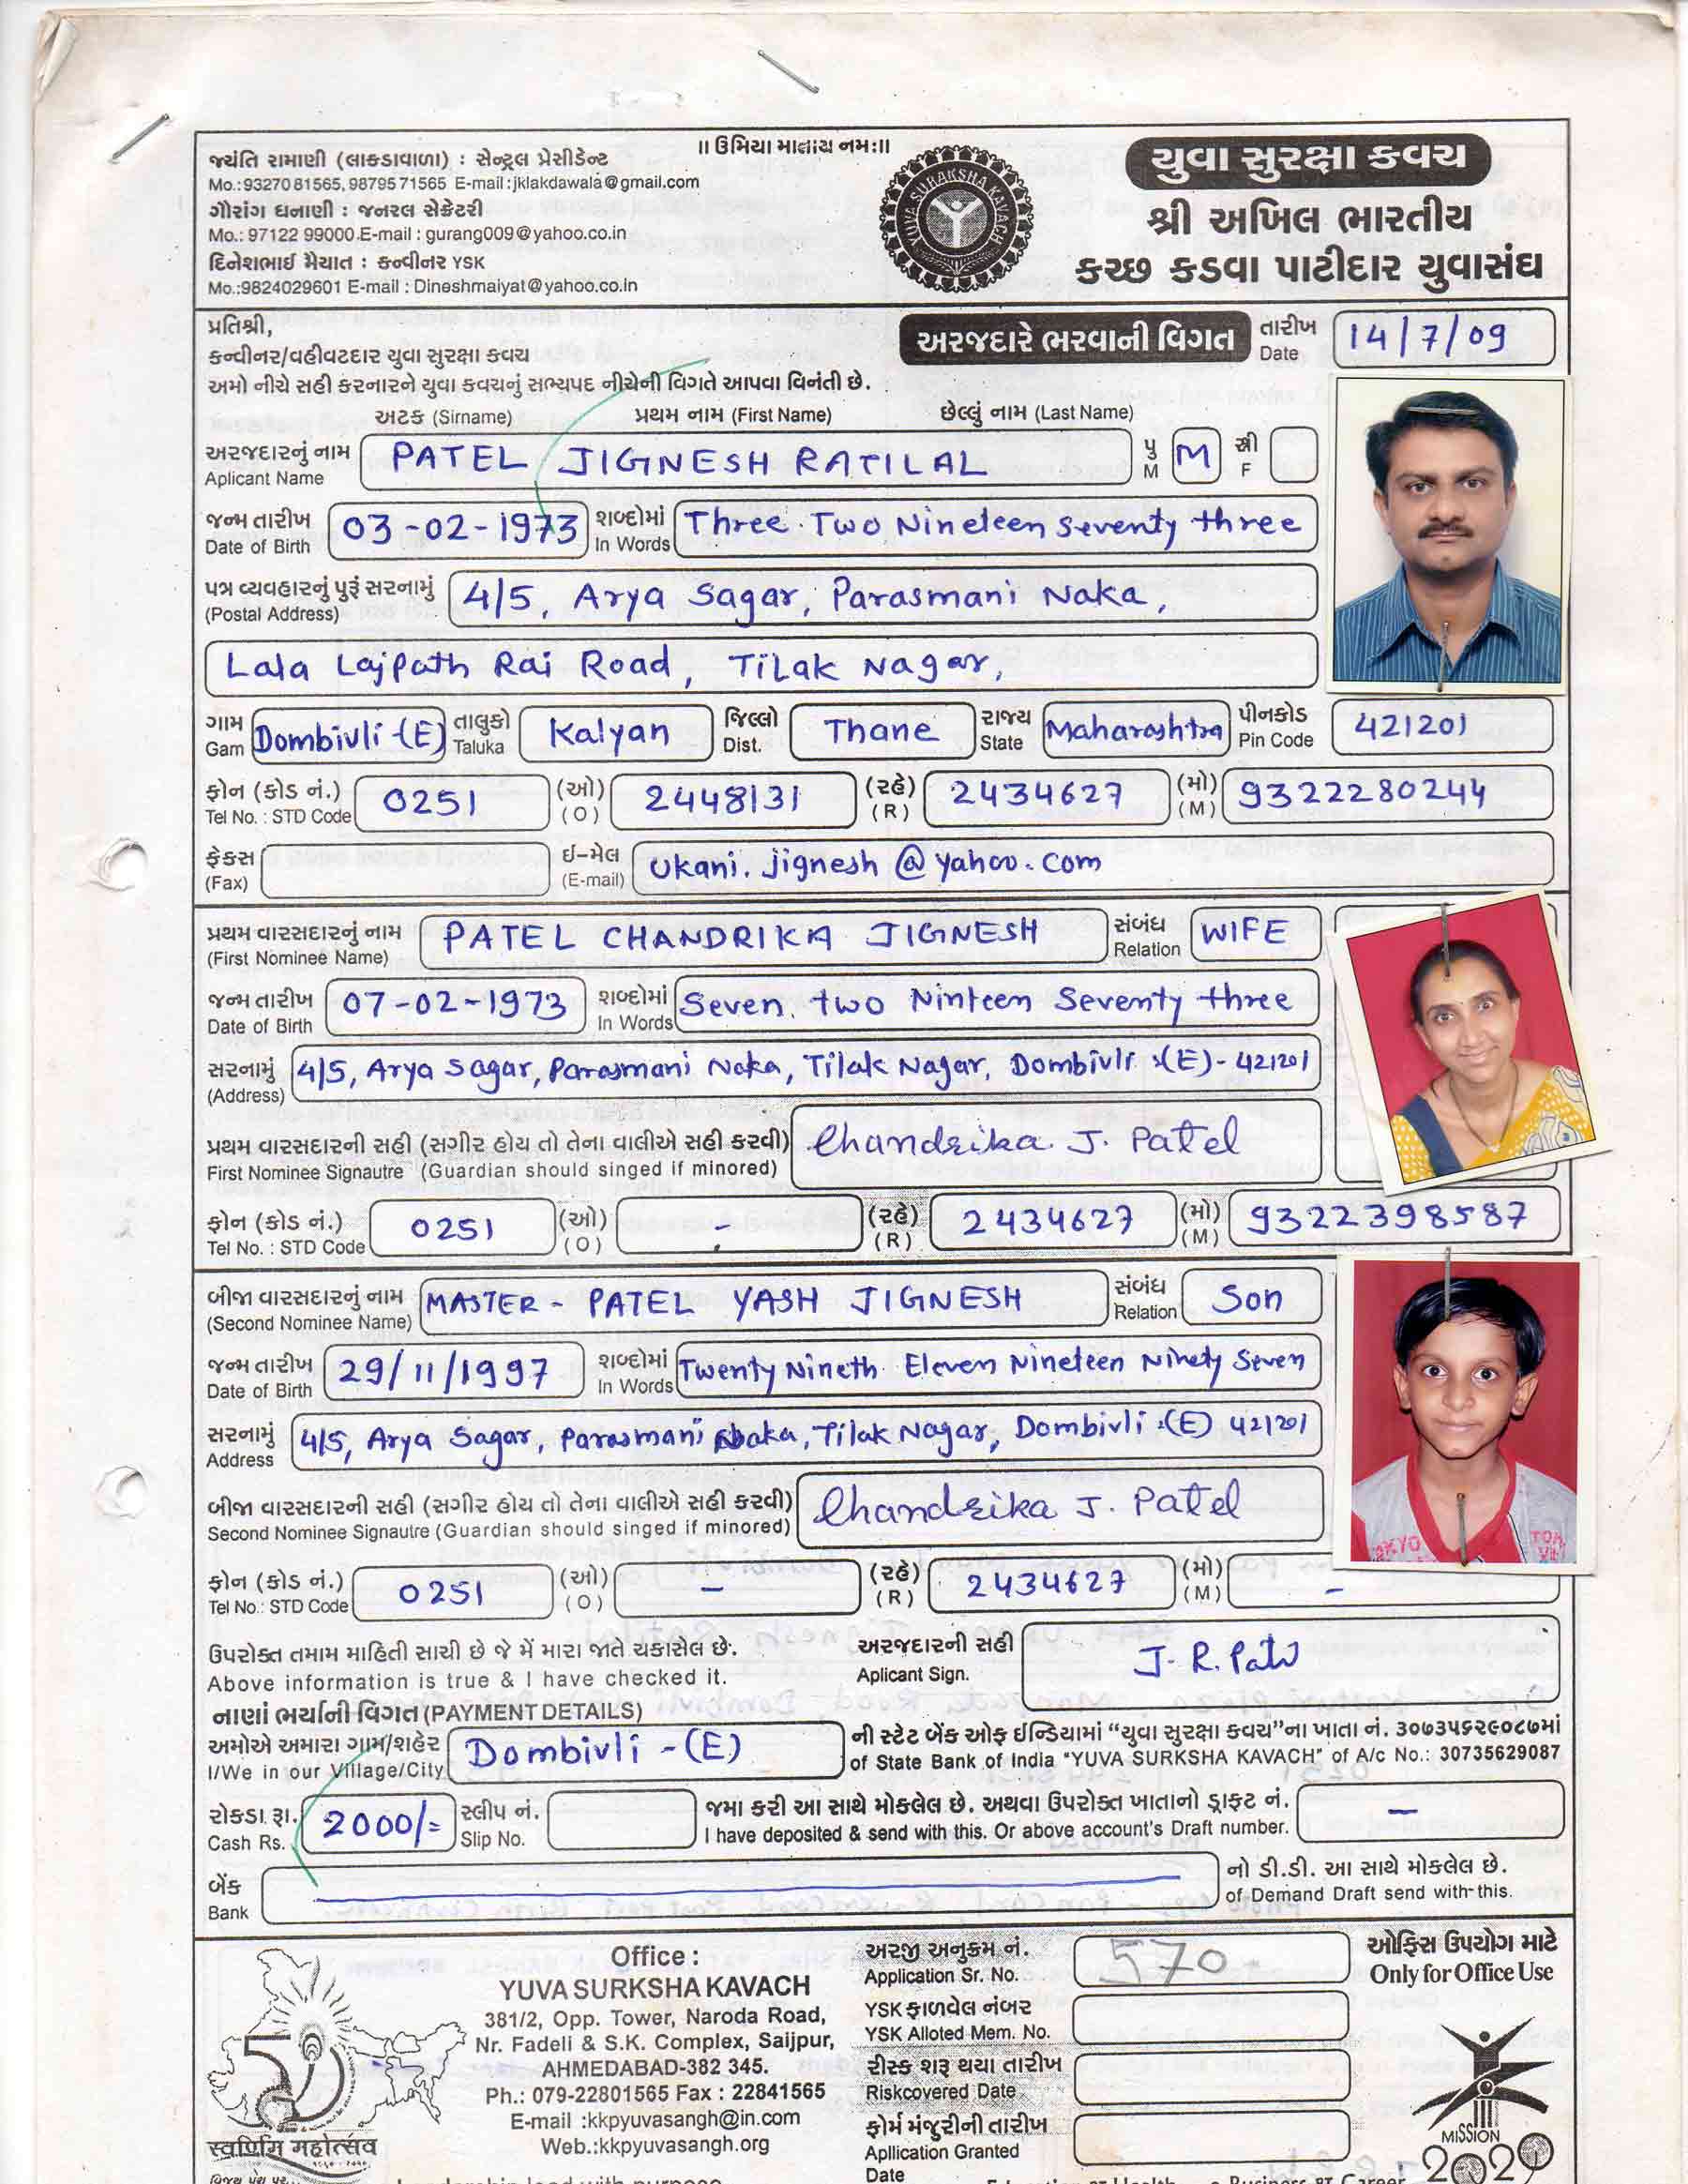 ॥ ઉમિયા માતાય નમઃ॥
જ્યંતિ રામાણી (લાકડાવાળા) : સેન્ટ્રલ પ્રેસીડેન્ટ
Mo.:93270 81565, 98795 71565 E-mail :jklakdawala@gmail.com
ગૌરાંગ ધનાણી : જનરલ સેક્રેટરી
Mo.: 97122 99000.E-mail : gurang009@yahoo.co.in
દિનેશભાઈ મૈયાત : કન્વીનર YSK
Mo.:9824029601 E-mail : Dineshmaiyat@yahoo.co.in
YUVA SURAKSHA KAVACH
યુવા સુરક્ષા કવચ
શ્રી અખિલ ભારતીય
કચ્છ કડવા પાટીદાર યુવાસંઘ
પ્રતિશ્રી,
અરજદારે ભરવાની વિગત તારીખ Date 14/7/09
કન્વીનર/વહીવટદાર યુવા સુરક્ષા કવચ
અમો નીચે સહી કરનારને યુવા કવચનું સભ્યપદ નીચેની વિગતે આપવા વિનંતી છે.
અટક (Sirname) પ્રથમ નામ (First Name) છેલ્લું નામ (Last Name)
અરજદારનું નામ Aplicant Name PATEL JIGNESH RATILAL પુ M M સ્ત્રી F
જન્મ તારીખ Date of Birth 03-02-1973 શબ્દોમાં In Words Three Two Nineteen Seventy three
પત્ર વ્યવહારનું પુરૂં સરનામું (Postal Address) 4/5, Arya Sagar, Parasmani Naka,
Lala Lajpath Rai Road, Tilak Nagar,
ગામ Gam Dombivli-(E) તાલુકો Taluka Kalyan જિલ્લો Dist. Thane રાજ્ય State Maharashtra પીનકોડ Pin Code 421201
ફોન (કોડ નં.) Tel No. : STD Code 0251 (ઓ) (O) 2448131 (રહે) (R) 2434627 (મો) (M) 9322280244
ફેકસ (Fax) ઈ-મેલ (E-mail) ukani.jignesh@yahoo.com
પ્રથમ વારસદારનું નામ (First Nominee Name) PATEL CHANDRIKA JIGNESH સંબંધ Relation WIFE
જન્મ તારીખ Date of Birth 07-02-1973 શબ્દોમાં In Words Seven. two Ninteen Seventy three
સરનામું (Address) 4/5, Arya Sagar, Parasmani Naka, Tilak Nagar, Dombivli (E)-421201
પ્રથમ વારસદારની સહી (સગીર હોય તો તેના વાલીએ સહી કરવી) Chandrika. J. Patel
First Nominee Signautre (Guardian should singed if minored)
ફોન (કોડ નં.) Tel No. : STD Code 0251 (ઓ) (O) - (રહે) (R) 2434627 (મો) (M) 9322398587
બીજા વારસદારનું નામ (Second Nominee Name) MASTER - PATEL YASH JIGNESH સંબંધ Relation Son
જન્મ તારીખ Date of Birth 29/11/1997 શબ્દોમાં In Words Twenty Nineth Eleven Nineteen Ninety Seven
સરનામું Address 4/5, Arya Sagar, Parasmani Naka, Tilak Nagar, Dombivli (E) 421201
બીજા વારસદારની સહી (સગીર હોય તો તેના વાલીએ સહી કરવી) Chandrika J. Patel
Second Nominee Signautre (Guardian should singed if minored)
ફોન (કોડ નં.) Tel No.: STD Code 0251 (ઓ) (O) - (રહે) (R) 2434627 (મો) (M) -
ઉપરોક્ત તમામ માહિતી સાચી છે જે મેં મારા જાતે ચકાસેલ છે. અરજદારની સહી J. R. Patel
Above information is true & I have checked it. Aplicant Sign.
નાણાં ભર્યાની વિગત (PAYMENT DETAILS)
અમોએ અમારા ગામ/શહેર Dombivli - (E) ની સ્ટેટ બેંક ઓફ ઈન્ડિયામાં “યુવા સુરક્ષા કવચ”ના ખાતા નં. ૩૦૭૩૫૬૨૯૦૮૭માં
I/We in our Village/City of State Bank of India "YUVA SURKSHA KAVACH" of A/c No.: 30735629087
રોકડા રૂા. Cash Rs. 2000/= સ્લીપ નં. Slip No. જમા કરી આ સાથે મોકલેલ છે. અથવા ઉપરોક્ત ખાતાનો ડ્રાફ્ટ નં. -
I have deposited & send with this. Or above account's Draft number.
બેંક Bank નો ડી.ડી. આ સાથે મોકલેલ છે.
of Demand Draft send with this.
Office :
YUVA SURKSHA KAVACH
381/2, Opp. Tower, Naroda Road,
Nr. Fadeli & S.K. Complex, Saijpur,
AHMEDABAD-382 345.
Ph.: 079-22801565 Fax : 22841565
E-mail :kkpyuvasangh@in.com
Web.:kkpyuvasangh.org
स्वर्णिम महोत्सव
અરજી અનુક્રમ નં. Application Sr. No. 570
YSK ફાળવેલ નંબર YSK Alloted Mem. No.
રીસ્ક શરૂ થયા તારીખ Riskcovered Date
ફોર્મ મંજુરીની તારીખ Apllication Granted Date
ઓફિસ ઉપયોગ માટે
Only for Office Use
MISSION
2020